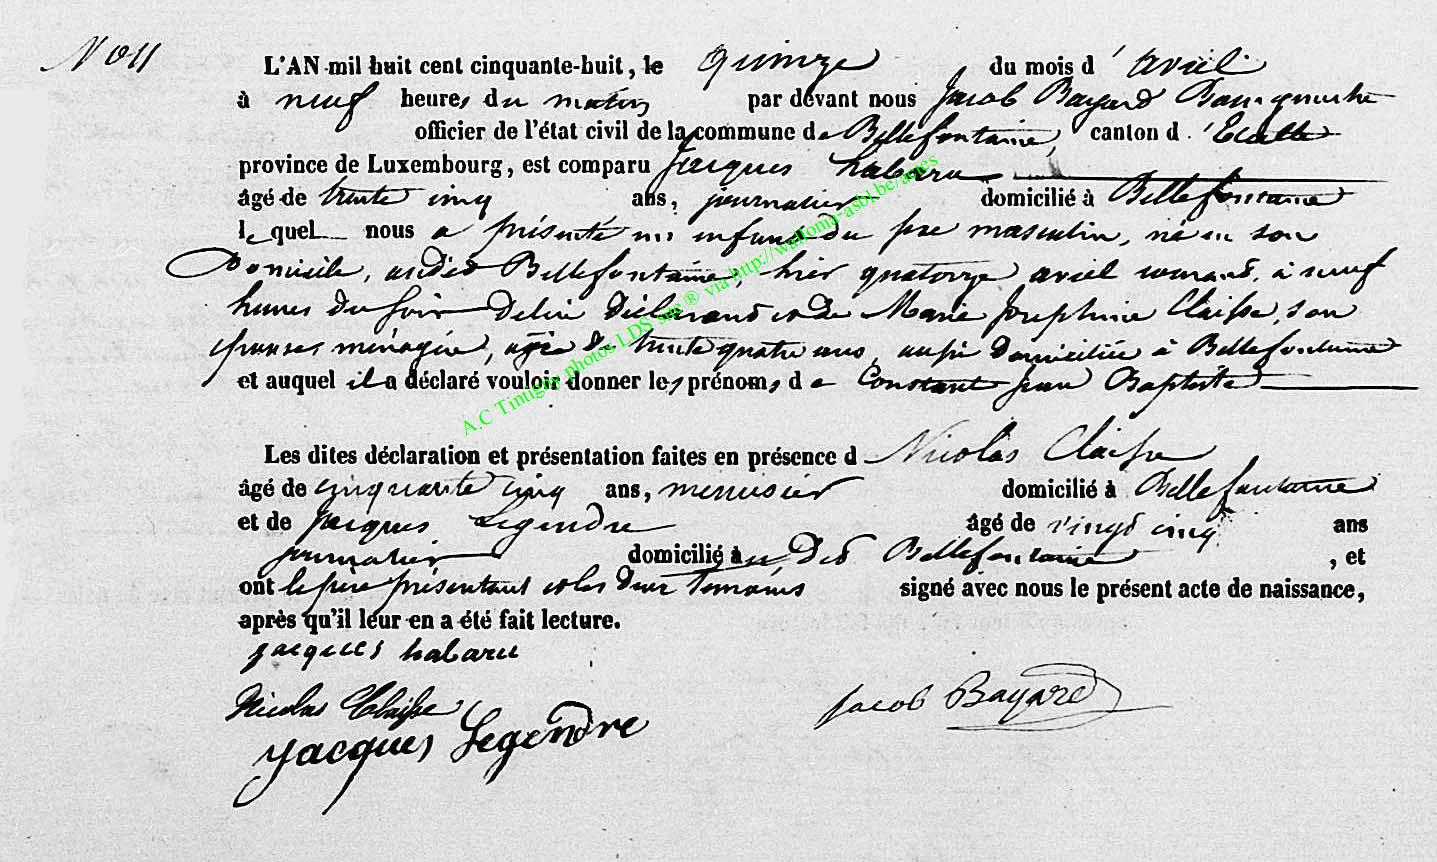 N° 11
L'AN mil huit cent cinquante-huit, le quinze du mois d' avril
à neuf heures du matin par devant nous Jacob Bayard Bourgmestre
officier de l'état civil de la commune de Bellefontaine, canton d' Etalle
province de Luxembourg, est comparu Jacques habaru
âgé de trente cinq ans, journalier domicilié à Bellefontaine
lequel nous a présenté un enfant du sexe masculin, né en son
Domicile, audit Bellefontaine, hier quatorze avril courant, à neuf
heures du soir De lui Déclarant et de Marie Josephine Claisse, son
épouse ménagère, agée de trente quatre ans, aussi Domiciliée à Bellefontaine
et auquel il a déclaré vouloir donner les prénoms de Constant Jean Baptiste
Les dites déclaration et présentation faites en présence d Nicolas Claisse
âgé de cinquante cinq ans, menuisier domicilié à Bellefontaine
et de Jacques Legendre âgé de vingt cinq ans
journalier domicilié au dit Bellefontaine, et
ont le père présentant et les deux témoins signé avec nous le présent acte de naissance,
après qu'il leur en a été fait lecture.
jacques habaru
Nicolas Claisse
Jacob Bayard
Jacques Legendre
A.C Tintigny photos LDS sac ® via http://wallonia-asbl.be/actes